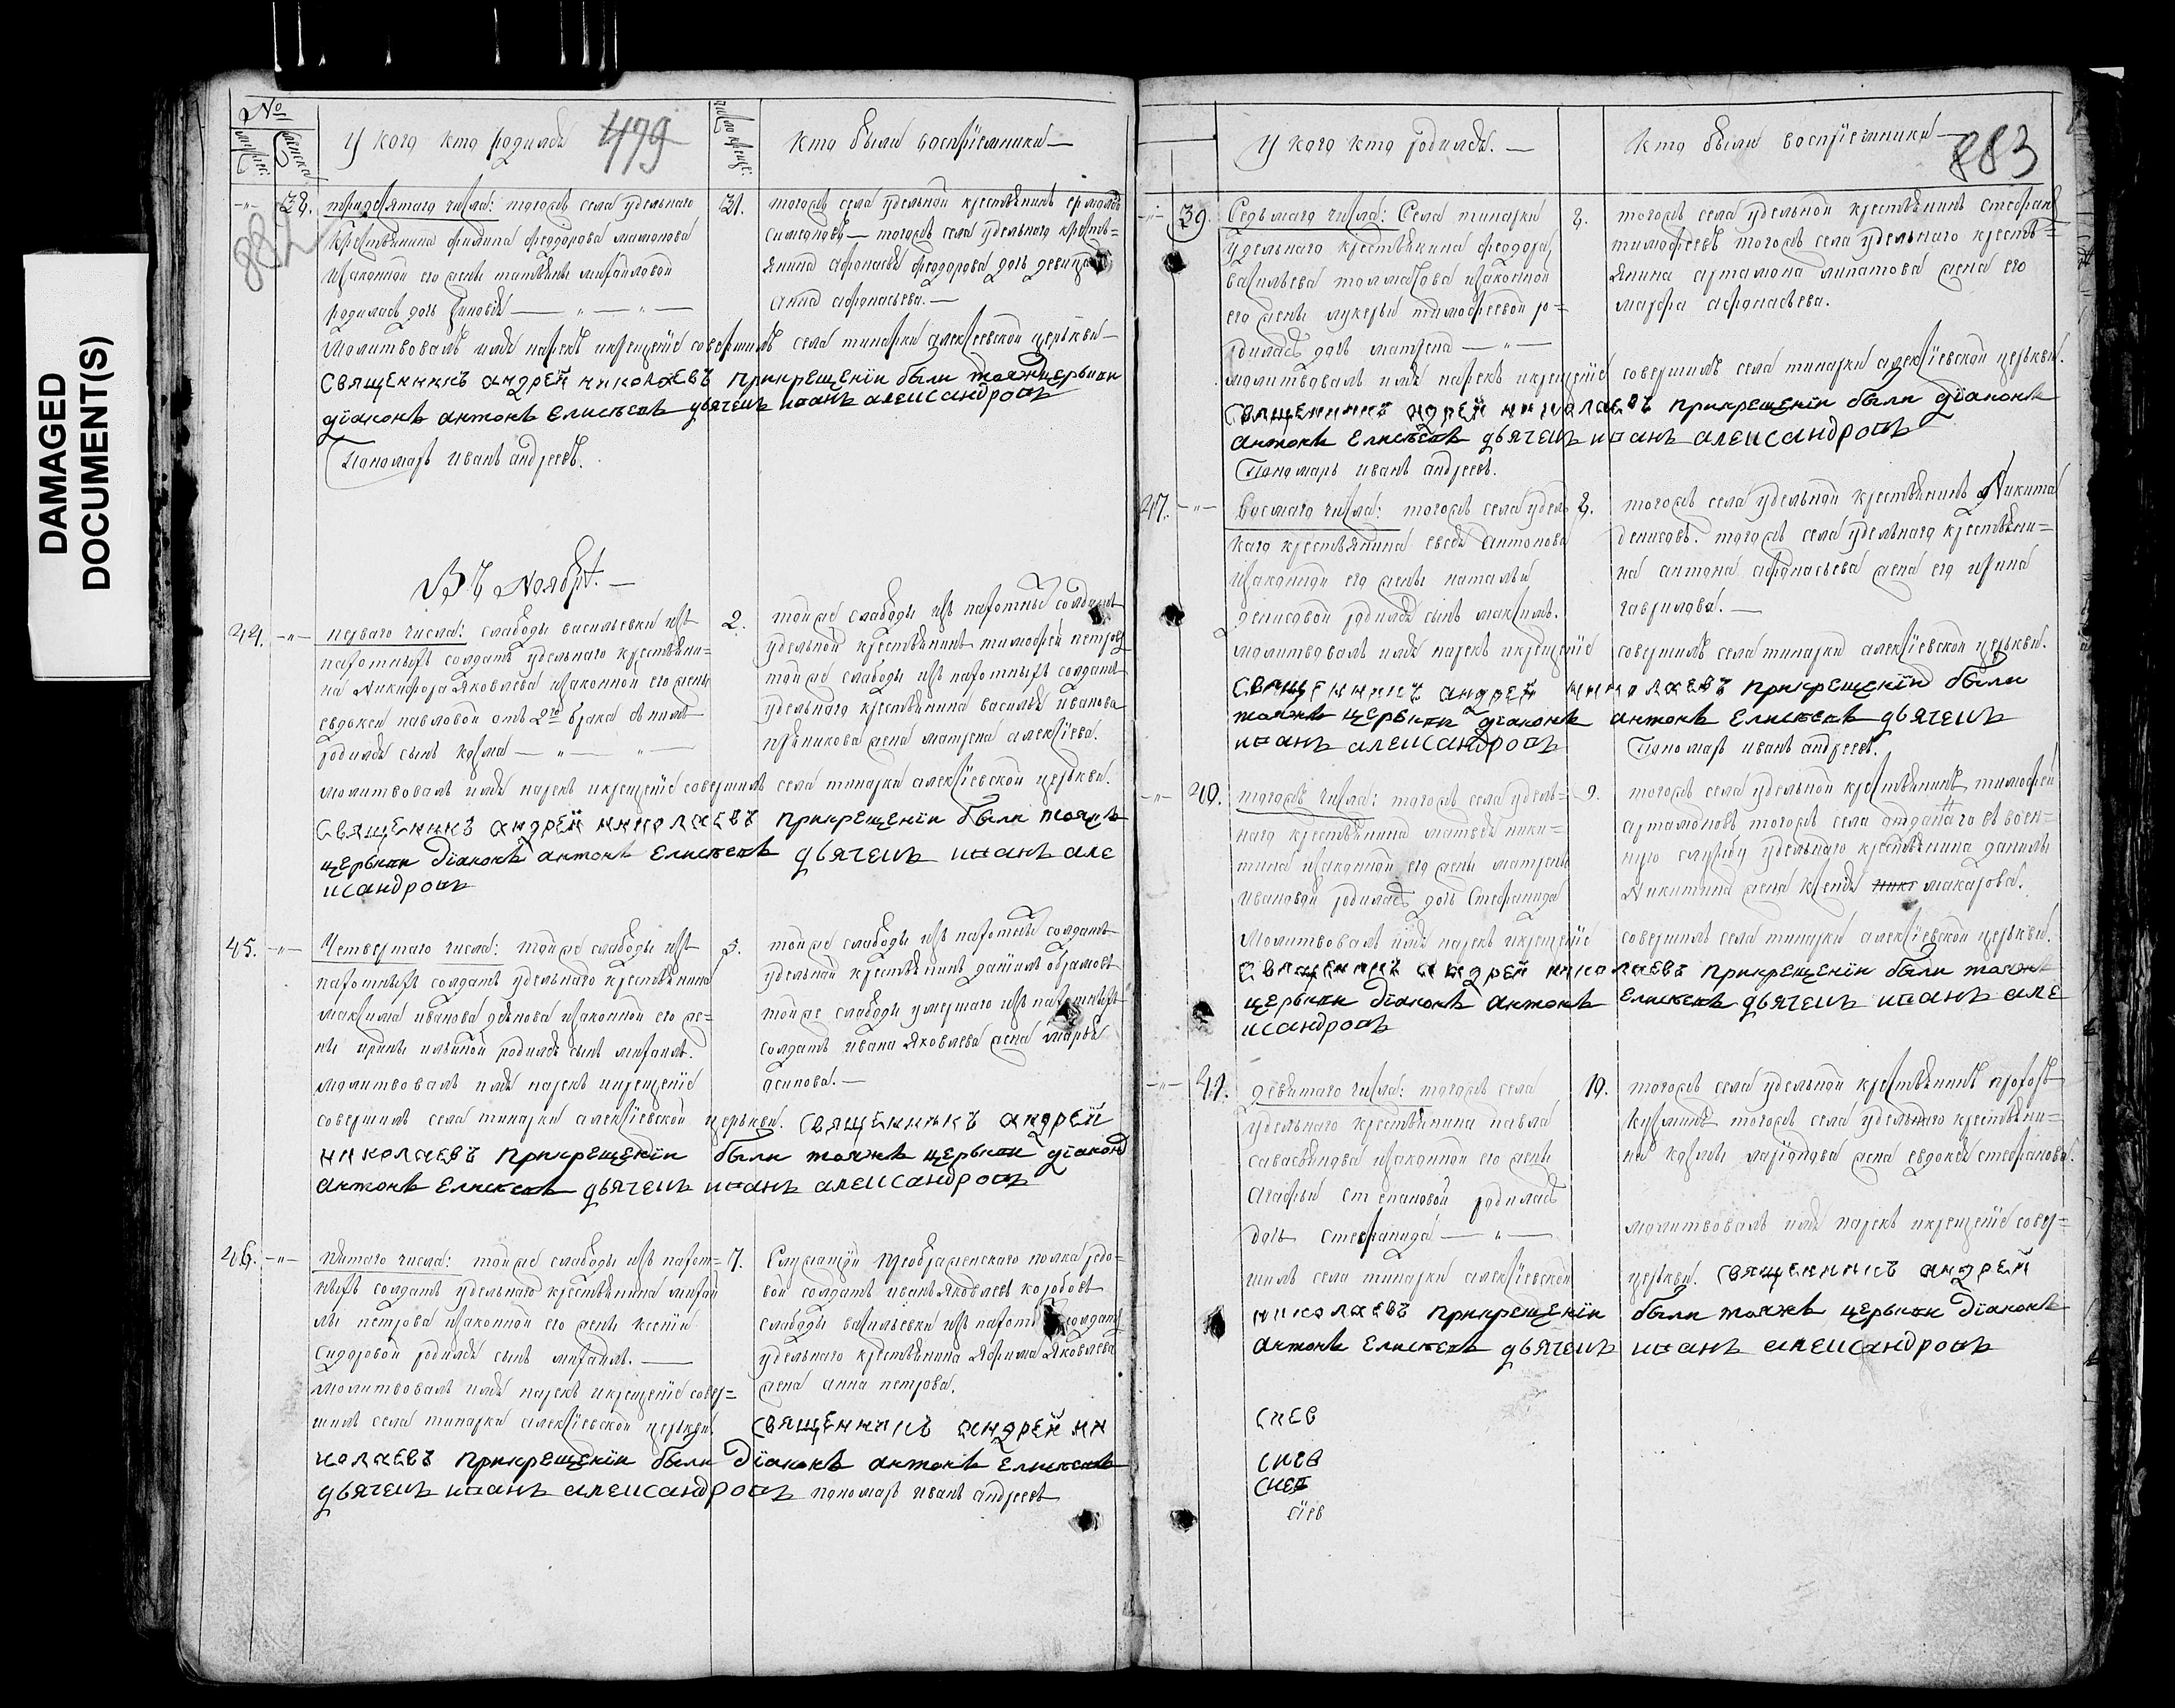 DAMAGED
DOCUMENT(S)
№
У кого кто родился
479
Кто были воспріемники —
882
38.
тридесятаго числа: тогожъ села удѣльнаго
крестьянина филипа феодорова мамонова
изаконной его жены татьяны михайловой
родилась дочь Зиновія
31.
тогожъ села удѣльной крестьянинъ ермолай
симеоновъ — тогожъ села удѣльнаго кресть=
янина афонасья феодорова дочь девица
анна афонасьева. —
Молитвовалъ имя нарекъ икрещеніе совершилъ села тинарки алексіевской церькви
священникъ андрей николаевъ прикрещеніи были тояжъ церькви
діаконъ антонъ Елисѣевъ дьячекъ иванъ александровъ
Пономарь иванъ андреевъ.
Въ Ноябрѣ. —
44.
перваго числа: слабоды васильевки изъ
пахотныхъ солдатъ удѣльнаго крестьяни=
на Никифора Яковлева изаконной его жены
евдокеи павловой отъ 2го брака
родился сынъ козма
2.
тойже слабоды изъ пахотныхъ солдатъ
удѣльной крестьянинъ тимофей петровъ
тойже слабоды изъ пахотныхъ солдатъ
удѣльнаго крестьянина василья иванова
жена матрена алексіева.
молитвовалъ имя нарекъ икрещеніе совершилъ села тинарки алексіевской церькви.
Священикъ андрей николаевъ прикрещеніи были тояжъ
церькви діаконъ антонъ Елисѣевъ дьячекъ иванъ але
ксандровъ
45.
Четвертаго числа: тойже слабоды изъ
пахотныхъ солдатъ удѣльнаго крестьянина
максима иванова изаконной его же=
ны ирины ильиной родился сынъ михаилъ.
5.
тойже слабоды изъ пахотныхъ солдатъ
удѣльной крестьянинъ данилъ абрамовъ
тойже слабоды умершаго изъ пахотныхъ
солдатъ ивана Яковлева жена марья
осипова. —
молитвовалъ имя нарекъ икрещеніе
совершилъ села тинарки алексіевской церькви. священникъ андрей
николаевъ прикрещеніи были тояжъ церькви діаконъ
антонъ Елисѣевъ дьячекъ иванъ александровъ
46.
пятаго числа: тойже слабоды изъ пахот=
ныхъ солдатъ удѣльнаго крестьянина михай
лы петрова изаконной его жены ксеніи
Сидоровой родился сынъ михаилъ. —
7.
Служащій преображенскаго полка редо=
вой солдатъ иванъ Яковлевъ коробовъ
слабоды васильевки изъ пахотныхъ солдатъ
удѣльнаго крестьянина Яфима Яковлева
жена анна петрова.
молитвовалъ имя нарекъ икрещеніе совер=
шилъ села тинарки алексіевской церькви. священникъ андрей ни
колаевъ прикрещеніи были діаконъ антонъ Елисѣевъ
дьячекъ иванъ александровъ пономарь иванъ андреевъ
У кого кто родился. —
Кто были воспріемники —
883
39.
Седьмаго числа: Села тинарки
удѣльнаго крестьянина феодора
васильева толмачова изаконной
его жены лукерьи тимофеевой ро=
дилась дочь матрена
8.
тогожъ села удѣльной крестьянинъ стефанъ
тимофеевъ тогожъ села удѣльнаго кресть=
янина артамона липатова жена его
марфа афонасьева.
молитвовалъ имя нарекъ икрещеніе совершилъ села тинарки алексіевской церькви.
Священникъ андрей николаевъ прикрещеніи были діаконъ
антонъ Елисѣевъ дьячекъ иванъ александровъ
Пономарь иванъ андреевъ.
47.
Восмаго числа: тогожъ села удель
наго крестьянина евсея антонова
изаконной его жены натальи
денисовой родился сынъ максимъ.
8.
тогожъ села удѣльной крестьянинъ Никита
денисовъ. тогожъ села удѣльнаго крестьяни=
на антона афонасьева жена его ирина
гаврилова. —
молитвовалъ имя нарекъ икрещеніе совершилъ села тинарки алексіевской церькви.
священникъ андрей николаевъ прикрещеніи были
тояжъ церькви діаконъ антонъ Елисѣевъ дьячекъ
иванъ александровъ Пономарь иванъ андреевъ.
40.
тогожъ числа: тогожъ села удѣль=
наго крестьянина матвея ники=
тина изаконной его жены матрены
ивановой родилась дочь Стефанида
9.
тогожъ села удѣльной крестьянинъ тимофей
артамоновъ тогожъ села отданаго въ воен=
ную службу удѣльнаго крестьянина данилы
Никитина жена ксенія макарова.
Молитвовалъ имя нарекъ икрещеніе совершилъ села тинарки алексіевской церькви.
Священникъ андрей николаевъ прикрещеніи были тояжъ
церькви діаконъ антонъ Елисѣевъ дьячекъ иванъ але
ксандровъ
41.
девятаго числа: тогожъ села
удѣльнаго крестьянина павла
савастьянова изаконной его жены
агафьи степановой родилась
дочь стефанида
10.
тогожъ села удѣльной крестьянинъ прохоръ
кузминъ тогожъ села удѣльнаго крестьяни=
на козмы ларіонова жена евдокея стефанова.
молитвовалъ имя нарекъ икрещеніе совер=
шилъ села тинарки алексіевской церькви. священникъ андрей
николаевъ прикрещеніи были тояжъ церькви діаконъ
антонъ Елисѣевъ дьячекъ иванъ александровъ